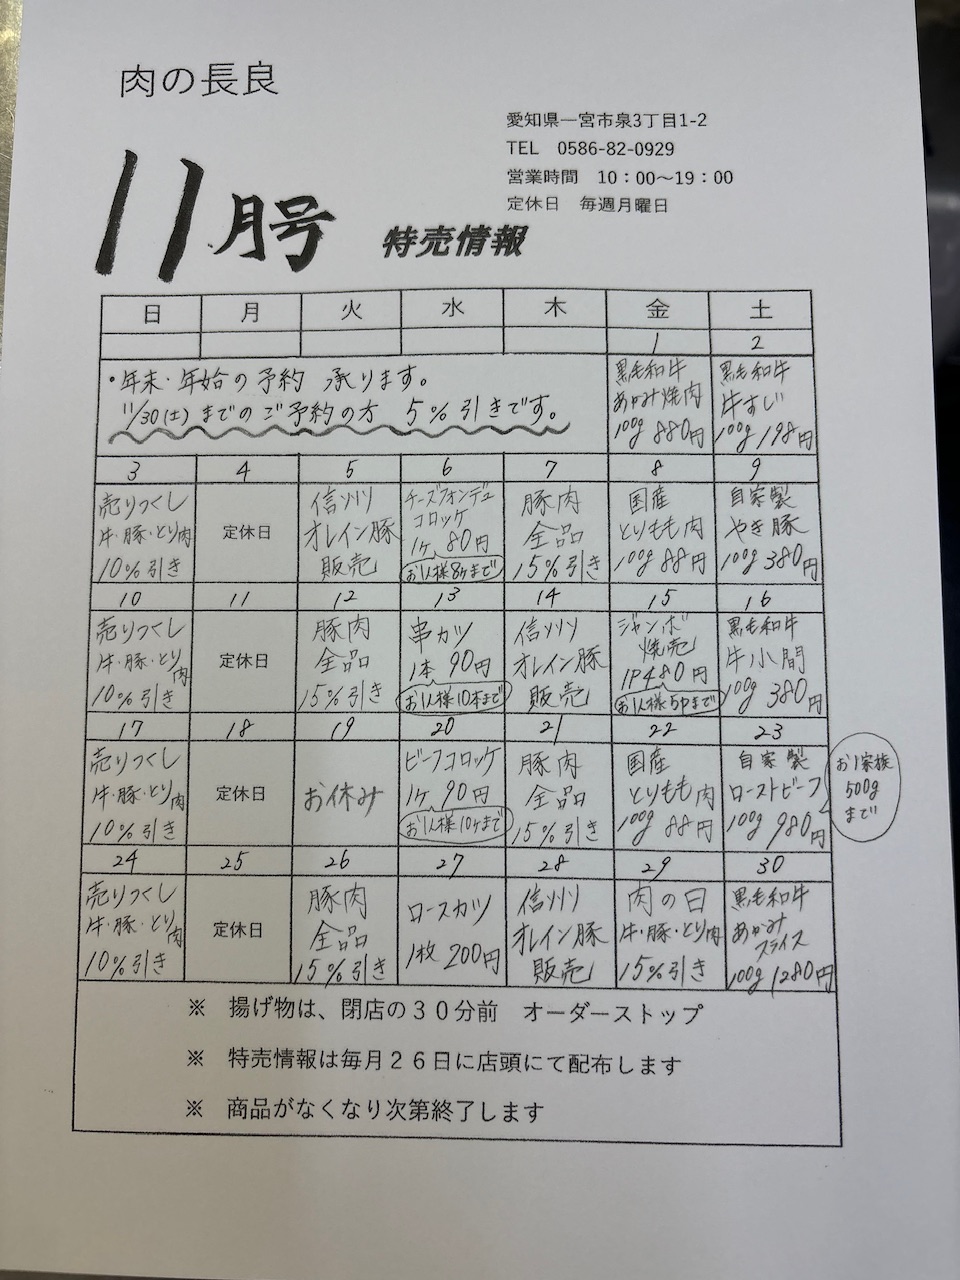 肉の長良
愛知県一宮市泉3丁目1-2
TEL 0586-82-0929
営業時間 10：00～19：00
定休日 毎週月曜日
11月号
特売情報
日 月 火 水 木 金 土
1 2
・年末・年始の予約 承ります。
11/30(土)までのご予約の方 5%引きです。
黒毛和牛
あかみ焼肉
100g 880円
黒毛和牛
牛すじ
100g 198円
3 4 5 6 7 8 9
売りつくし
牛・豚・とり肉
10%引き
定休日
信州
オレイン豚
販売
チーズフォンデュ
コロッケ
1ケ 80円
お1人様8ケまで
豚肉
全品
15%引き
国産
とりもも肉
100g 88円
自家製
やき豚
100g 380円
10 11 12 13 14 15 16
売りつくし
牛・豚・とり肉
10%引き
定休日
豚肉
全品
15%引き
串カツ
1本 90円
お1人様10本まで
信州
オレイン豚
販売
ジャンボ
焼売
1P480円
お1人様5Pまで
黒毛和牛
牛小間
100g 380円
17 18 19 20 21 22 23
売りつくし
牛・豚・とり肉
10%引き
定休日
お休み
ビーフコロッケ
1ケ 90円
お1人様10ケまで
豚肉
全品
15%引き
国産
とりもも肉
100g 88円
自家製
ローストビーフ
100g 980円
お1家族
500g
まで
24 25 26 27 28 29 30
売りつくし
牛・豚・とり肉
10%引き
定休日
豚肉
全品
15%引き
ロースカツ
1枚 200円
信州
オレイン豚
販売
肉の日
牛・豚・とり肉
15%引き
黒毛和牛
あかみ
スライス
100g 1280円
※ 揚げ物は、閉店の３０分前 オーダーストップ
※ 特売情報は毎月２６日に店頭にて配布します
※ 商品がなくなり次第終了します